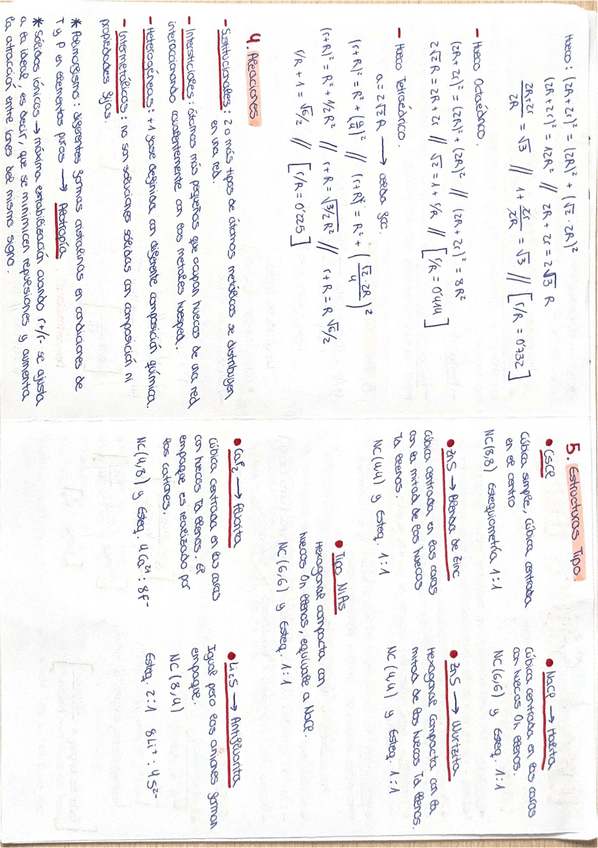 Hueco: (2R+2r)² = (2R)² + (√2 · 2R)²
(2R+2r)² = 12R² // 2R + 2r = 2√3 R
2R+2r / 2R = √3 // 1 + 2r/2R = √3 // [r/R = 0'732]
- Hueco Octaédrico.
(2R+2r)² = (2R)² + (2R)² // (2R+2r)² = 8R²
2√2 R = 2R + 2r // √2 = 1 + r/R // [r/R = 0'414]
- Hueco Tetraédrico.
a = 2√2 R → celda fcc.
(r+R)² = R² + (a/4)² // (r+R)² = R² + (√2·2R/4)²
(r+R)² = R² + 1/2 R² // r+R = √3/2 R² // r+R = R √6/2
r/R + 1 = √6/2 // [r/R = 0'225]
4. Aleaciones
- Sustitucionales: 2 o más tipos de átomos metálicos se distribuyen
en una red.
- Intersticiales: átomos más pequeños que ocupan huecos de una red,
interaccionando covalentemente con los metales huésped.
- Heterogéneas: +1 fase definida con diferente composición química.
- Intermetálicos: no son soluciones sólidas con composición ni
propiedades fijas.
* Polimorfismo: diferentes formas cristalinas en condiciones de
T y P en elementos puros → Alotropía
* Sólidos iónicos → máxima estabilización cuando r+/r- se ajusta
a la ideal, es decir, que se minimicen repulsiones y aumenta
la atracción entre iones del mismo signo.
5. Estructuras Tipo.
• CsCl
Cúbica simple, cúbica centrada
en el centro
NC(8,8) Estequiometría 1:1
• NaCl → Halita
Cúbica centrada en las caras
con huecos Oh llenos.
NC(6,6) y Esteq. 1:1
• ZnS → Blenda de Zinc
Cúbica centrada en las caras
con la mitad de los huecos
Td llenos.
NC(4,4) y Esteq. 1:1
• ZnS → Wurtzita
Hexagonal Compacta con la
mitad de los huecos Td llenos.
NC(4,4) y Esteq. 1:1
• Tipo NiAs
Hexagonal compacta con
huecos Oh llenos, equivale a NaCl.
NC(6,6) y Esteq. 1:1
• CaF₂ → Fluorita
Cúbica centrada en las caras
con huecos Td llenos. El
empaque es realizado por
los cationes.
NC(4,8) y Esteq. 4Ca²⁺ : 8F⁻
• Li₂S → Antifluorita
Igual pero los aniones forman
empaque.
NC(8,4)
Esteq. 2:1 8Li⁺ : 4S²⁻